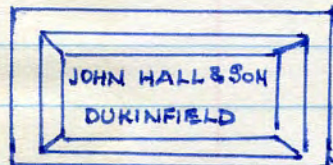 JOHN HALL & SON
DUKINFIELD